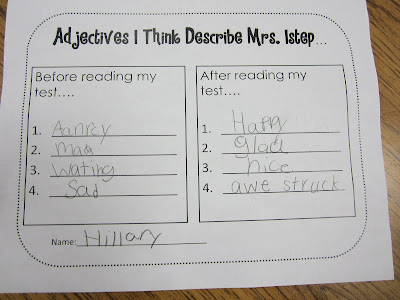 Adjectives I Think Describe Mrs. Istep...
Before reading my
test....
1. Aanrey
2. mad
3. wating
4. Sad
After reading my
test....
1. Happy
2. glad
3. nice
4. awe struck
Name: Hillary